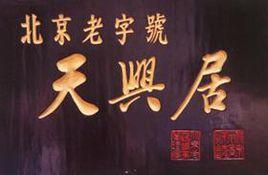 北京老字號
天興居